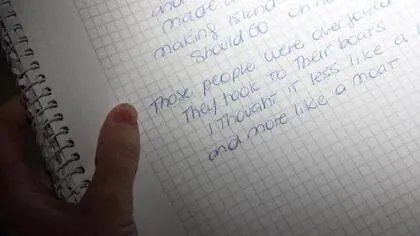 and
made
making island
should go on
Those people were overjoyed
They took to Their boats
I Thought it less like a
and more like a moat